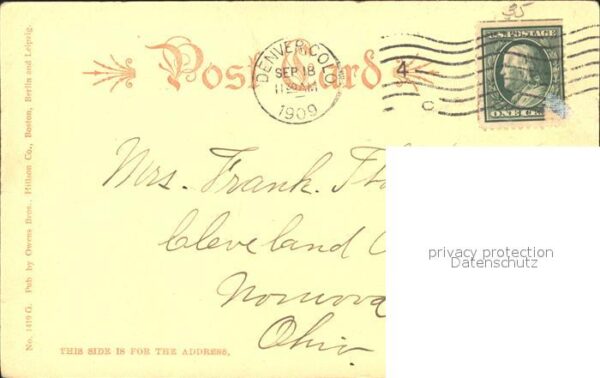 35
U.S. POSTAGE
Post Card
DENVER, COLO.
SEP 18
11 AM
1909
4
ONE CE
Mrs. Frank. Th
privacy protection
Datenschutz
Cleveland
Ohio
THIS SIDE IS FOR THE ADDRESS.
No. 1419 G. Pub by Owens Bros. Hillson Co., Boston, Berlin and Leipzig.